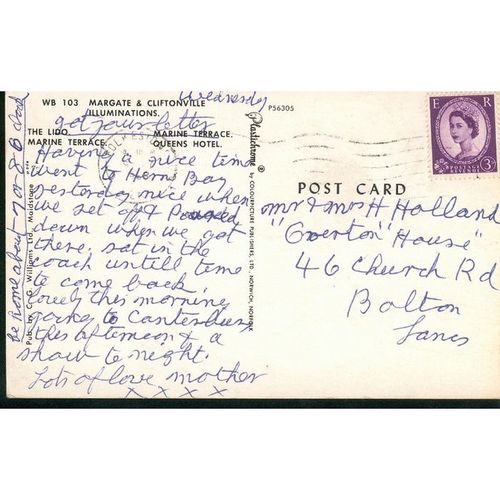 Wednesday
WB 103 MARGATE & CLIFTONVILLE
ILLUMINATIONS.
got your letter
THE LIDO, MARINE TERRACE,
MARINE TERRACE. QUEENS HOTEL.
Having a nice time
went to Herne Bay
yesterday nice when
we set off Poured
down when we got
there. sat in the
coach untill time
to come back
lovely this morning
going to Canterbury
this afternoon & a
show to night.
Lots of love mother
x x x x
be home about 7 or 8 o clock
Pub. by C. G. Williams Ltd., Maidstone
Plastichrome ® by COLOURPICTURE PUBLISHERS, LTD., NORWICH, NORFOLK
P56305
E R
POSTAGE REVENUE
3D
POST CARD
mr & mrs H Holland
"Overton" House"
46 Church Rd
Bolton
Lancs